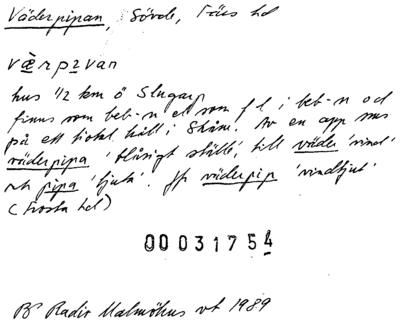 Väderpipan, Sövde, Färs hd
væ̀rpɪvan
hus 1/2 km ö Slugarp
finns som beb-n el som f l i beb-n och
på ett tiotal håll i Skåne. Av en app mots
väderpipa 'blåsigt ställe', till väder 'vind'
och pipa 'tjuta'. Jfr väderpip 'vindtjut'
(Frosta hd)
00 031754
BP Radio Malmöhus vt 1989